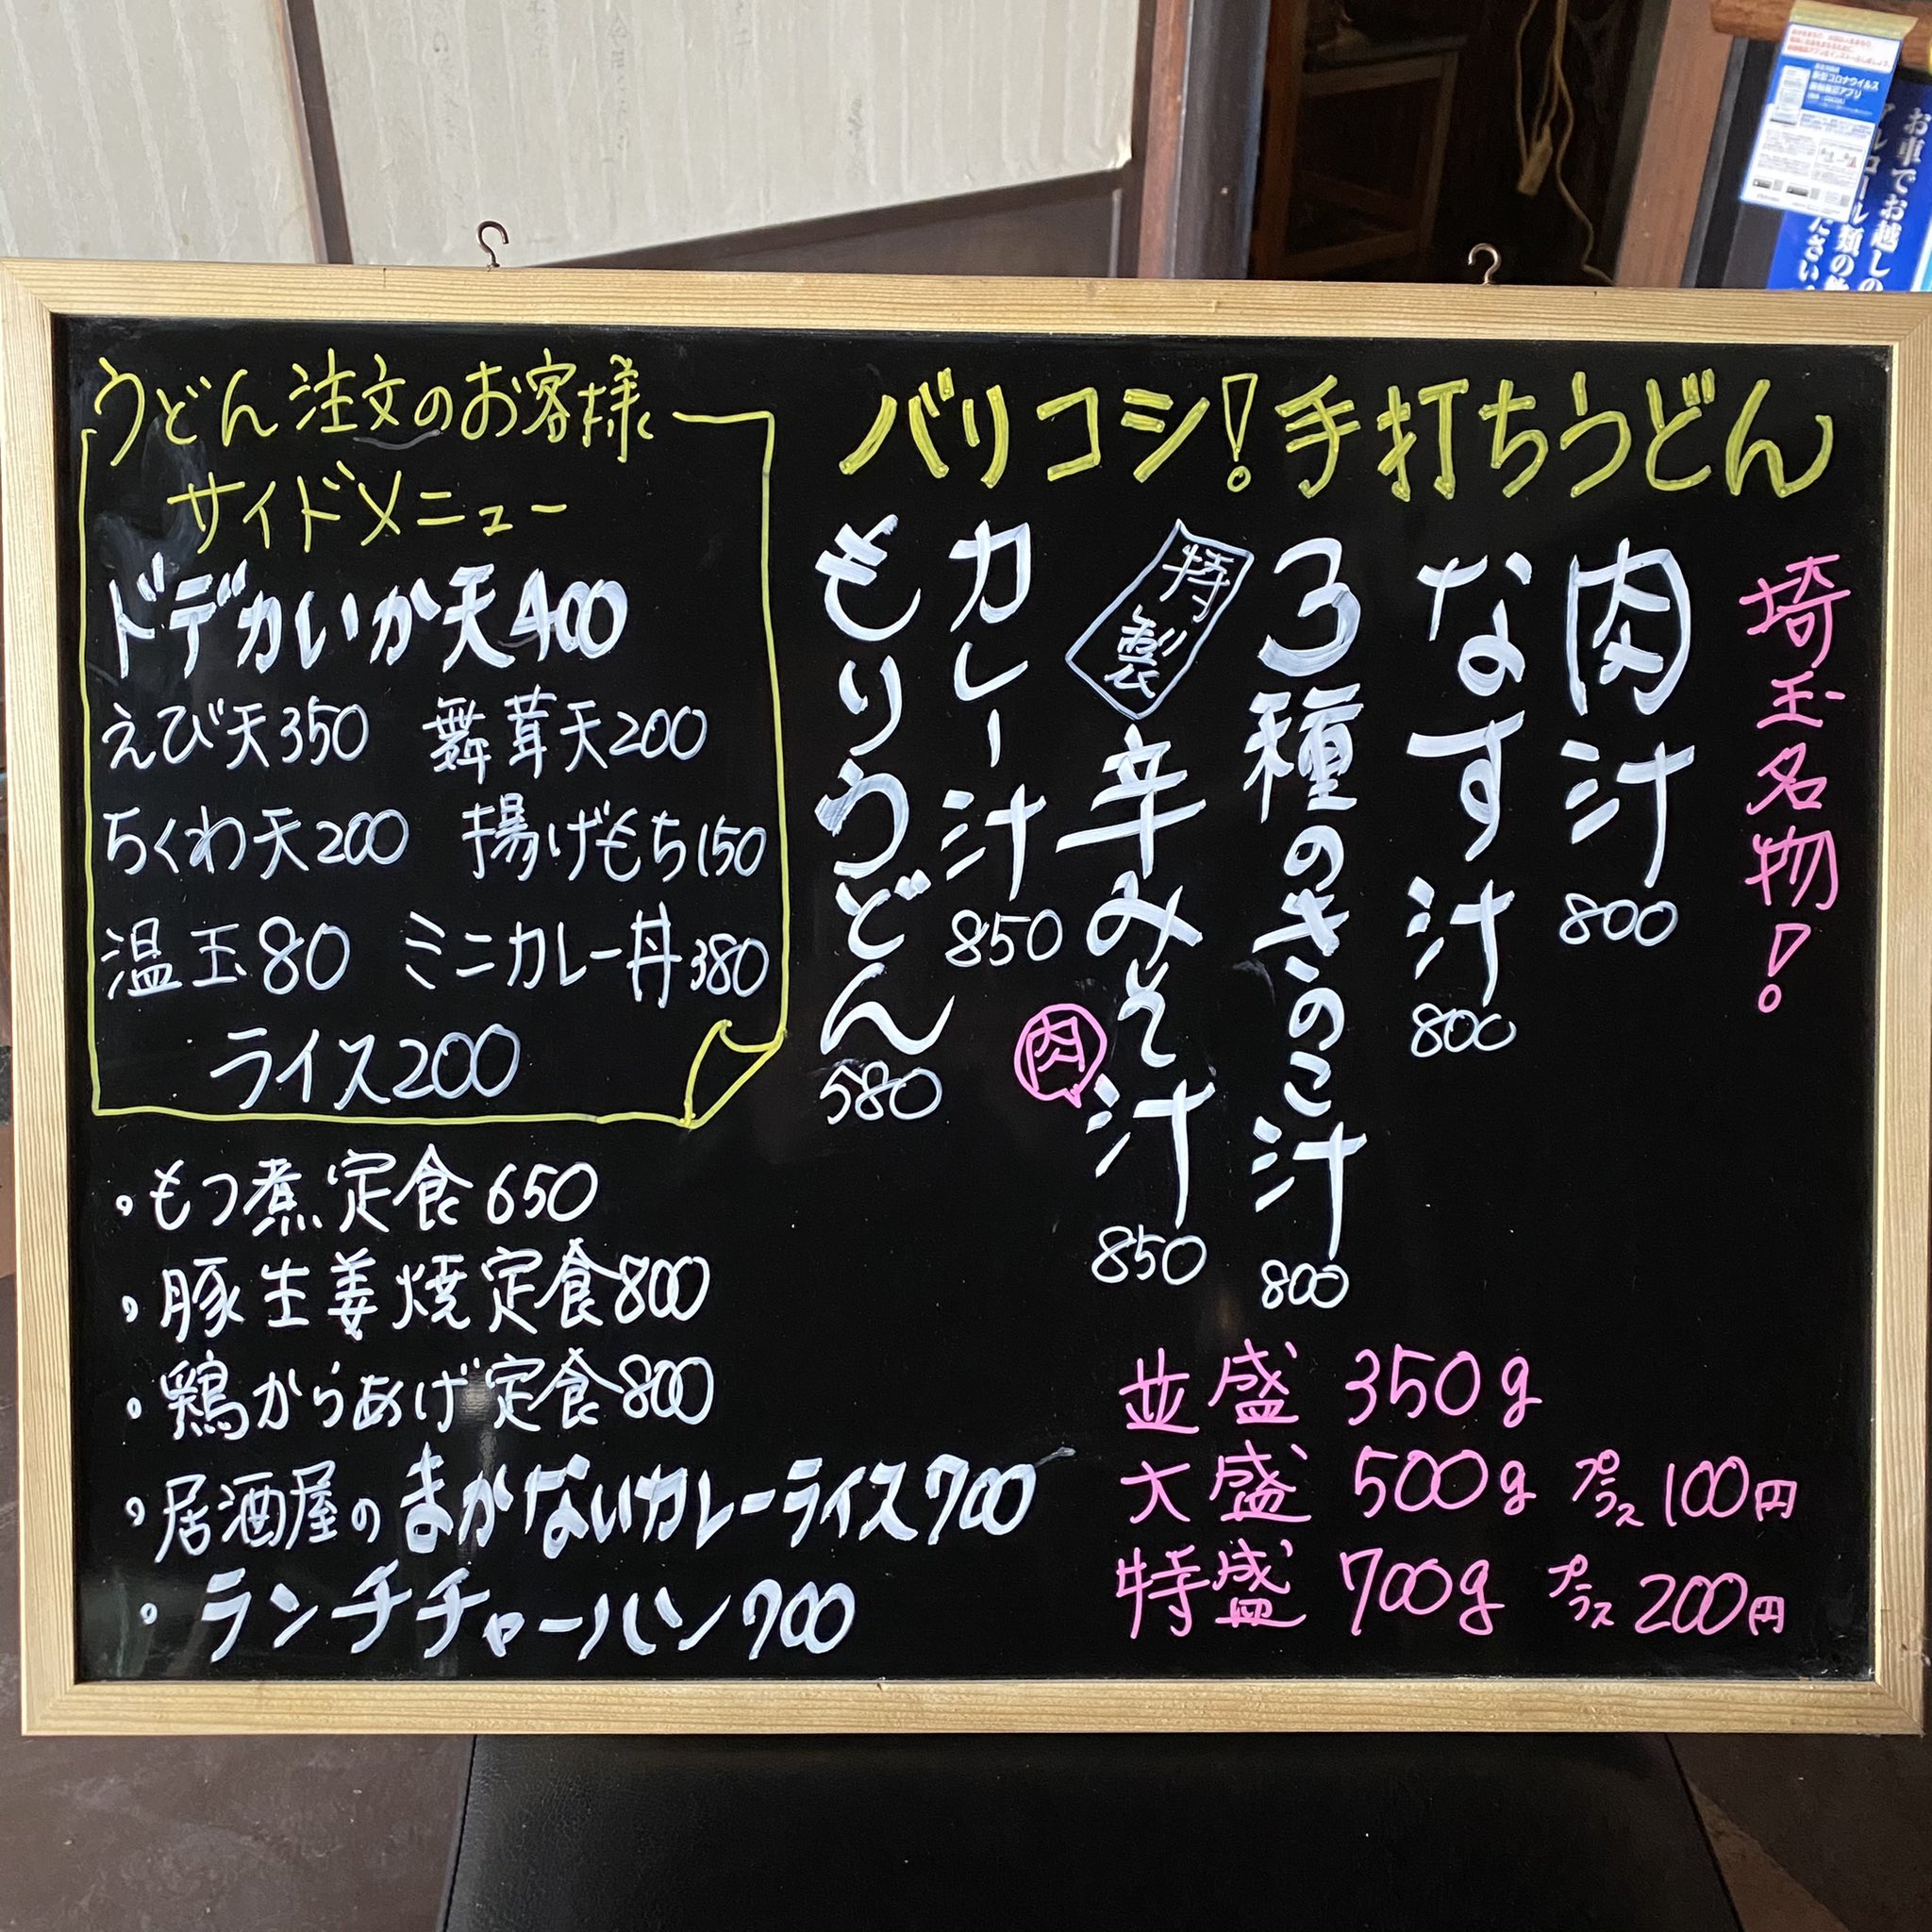 バリコシ!手打ちうどん
埼玉名物!
肉汁800
なす汁800
3種のきのこ汁800
特製
辛みそ汁850
肉
カレー汁850
もりうどん580
並盛 350g
大盛 500g プラス100円
特盛 700g プラス200円
うどん注文のお客様
サイドメニュー
ドデカいか天400
えび天350 舞茸天200
ちくわ天200 揚げもち150
温玉80 ミニカレー丼380
ライス200
・もつ煮定食650
・豚生姜焼定食800
・鶏からあげ定食800
・居酒屋のまかないカレーライス700
・ランチチャーハン700
お車でお越しの
アルコール類の
ださい。
新型コロナウイルス
接触確認アプリ